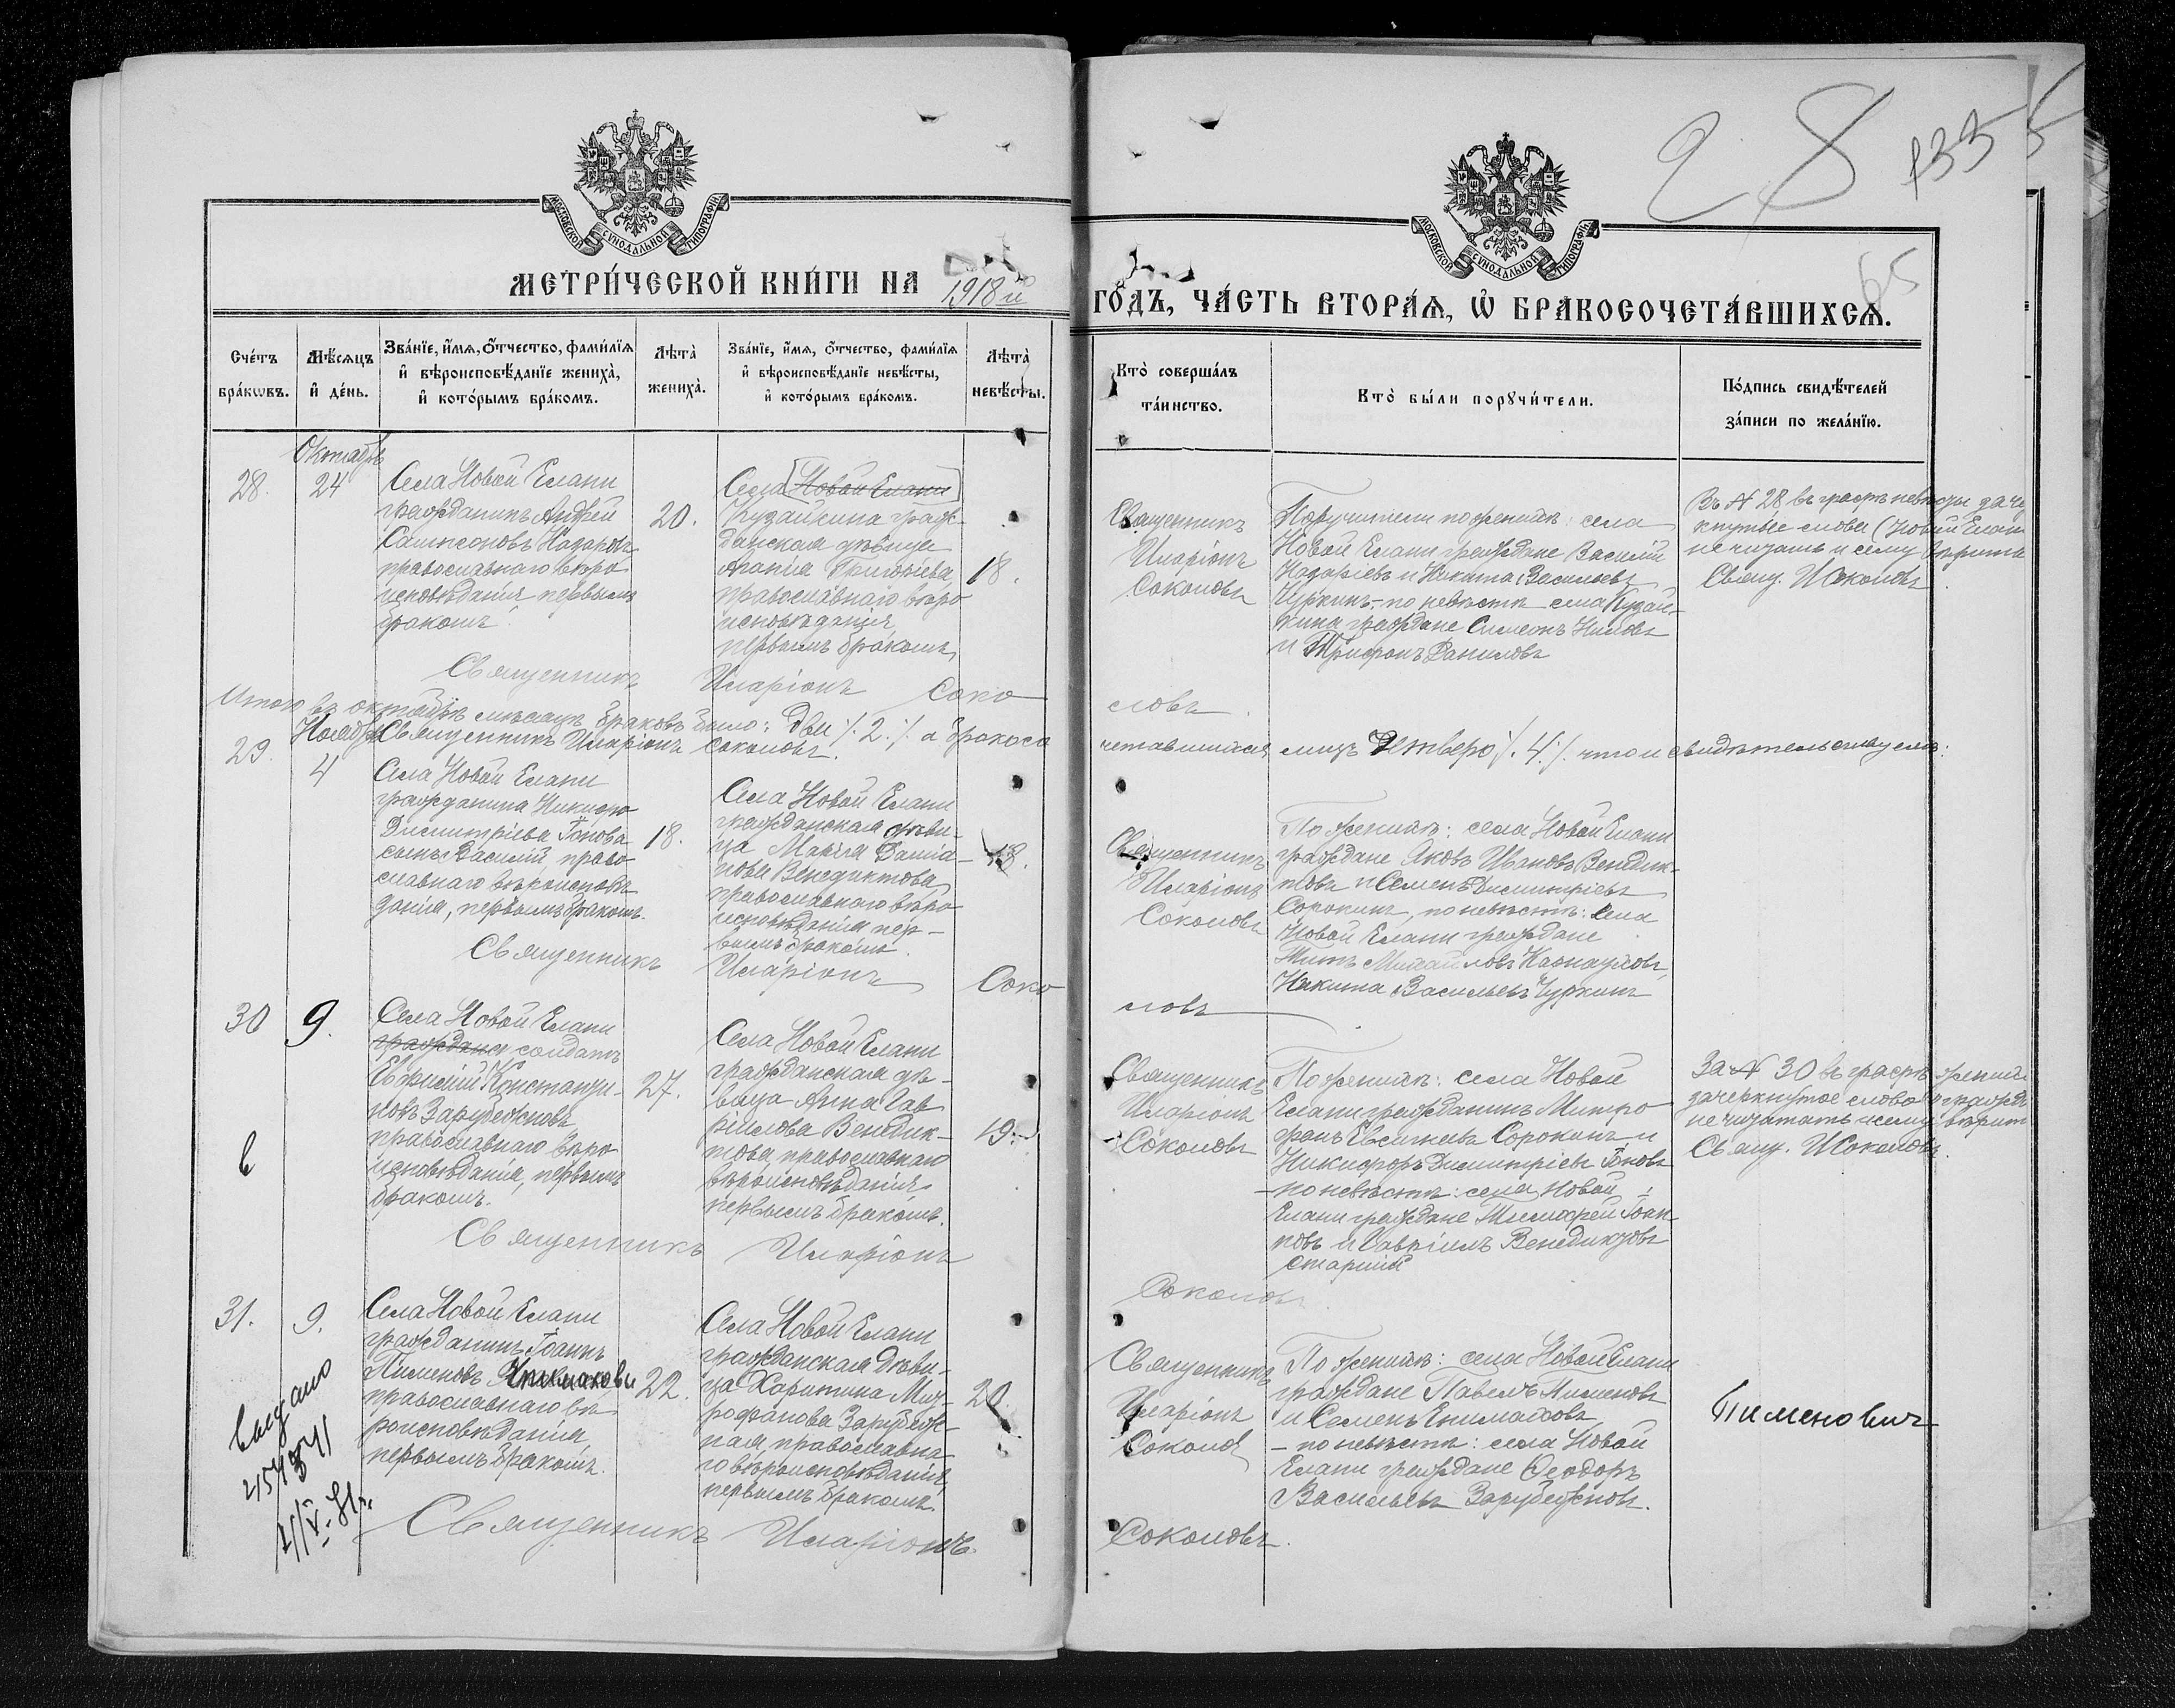 28 133
65
МОСКОВСКОЙ СѴНОДАЛЬНОЙ ТИПОГРАФІИ
МОСКОВСКОЙ СѴНОДАЛЬНОЙ ТИПОГРАФІИ
МЕТРИ́ЧЕСКОЙ КНИ́ГИ НА 1918 й
ГО́ДЪ, ЧА́СТЬ ВТОРА́Ѧ, Ѡ҆ БРАКОСОЧЕТА́ВШИХСѦ.
Сче́тъ
бра́кѡвъ.
Мѣ́сѧцъ
и҆ де́нь.
Зва́нїе, и҆́мѧ, ѻ҆́тчество, фами́лїѧ
и҆ вѣроисповѣ́данїе жениха̀,
и҆ кото́рымъ бра́комъ.
Лѣ́та̀
жениха̀.
Зва́нїе, и҆́мѧ, ѻ҆́тчество, фами́лїѧ
и҆ вѣроисповѣ́данїе невѣ́сты,
и҆ кото́рымъ бра́комъ.
Лѣ́та̀
невѣ́сты.
Кто̀ соверша́лъ
та́инство.
Кто̀ бы́ли порꙋчи́тели.
По́дпись свидѣ́телей
за́писи по жела́нїю.
28.
Октябрь
24
Села Новой Елани
гражданинъ Андрей
Сампсоновъ Назаровъ
православнаго вѣро
исповѣданія первымъ
бракомъ.
20.
Села (Новой Елани)
Кузайкина граж-
данская дѣвица
Агапія Григорьева
православнаго вѣро
исповѣданія
первымъ бракомъ,
18.
Священникъ
Иларіонъ
Соколовъ
Поручители по женихѣ: села
Новой Елани граждане Василій
Назаріевъ и Никита Васильевъ
Чуркинъ, – по невѣстѣ села Кузай-
кина граждане Симеонъ Ниловъ
и Трифонъ Даниловъ
Въ № 28 въ графѣ невѣсты заче
кнутые слова (Новой Елан
не читать и сему вѣрить
Свящ. И Соколовъ.
Священникъ Иларіонъ Соко
ловъ.
Итого въ октябрѣ мѣсяцѣ браковъ было: два /. 2 ./. а бракосо
четавшихся лицъ четверо /. 4 ./. что и свидѣтельствуемъ:
Священникъ Иларіонъ Соколовъ.
29.
Ноябрь
4
Села Новой Елани
гражданина Никифо
Димитріева Гонова
сынъ Василій право-
славнаго вѣроисповѣ
данія, первымъ бракомъ.
18.
Села Новой Елани
гражданская дѣви-
ца Марія Даміа-
нова Венедиктова,
православнаго вѣро
исповѣданія пер-
вымъ бракомъ.
18.
Священникъ
Иларіонъ
Соколовъ
По женихѣ: села Новой Елани
граждане Яковъ Ивановъ Венедик-
товъ и Семенъ Димитріевъ
Сорокинъ, по невѣстѣ: села
Новой Елани граждане
Титъ Михайловъ Карнауховъ,
Никита Васильевъ Чуркинъ
Священникъ Иларіонъ Соко
ловъ
30
9.
в
Села Новой Елани
граждани солдатъ
Евфимій Константи-
новъ Зарубежновъ,
православнаго вѣро
исповѣданія, первымъ
бракомъ.
27.
Села Новой Елани
гражданская дѣ-
вица Анна Гав
ріилова Венедик-
това, православнаго
вѣроисповѣданія
первымъ бракомъ.
19.
Священникъ
Иларіонъ
Соколовъ
По женихѣ: села Новой
Елани гражданинъ Митро
фанъ Евсигнеевъ Сорокинъ и
Никифоръ Димитріевъ Гоновъ
– по невѣстѣ: села Новой
Елани граждане Тимофей Іоан-
новъ и Гавріилъ Венедиктовъ
Старшій
За № 30 въ графѣ жених
зачеркнутое слово гражд
не читать и сему вѣрить
Свящ. И Соколовъ.
Священникъ Иларіонъ
Соколовъ.
31.
9.
выдано
11/V-
Села Новой Елани
гражданинъ Іоаннъ
Пименовъ
православнаго вѣ
роисповѣданія,
первымъ бракомъ.
22.
Села Новой Елани
гражданская дѣви-
ца Харитина Мит-
рофанова Зарубеж-
ная, православна-
го вѣроисповѣданія,
первымъ бракомъ.
20.
Священникъ
Иларіонъ
Соколовъ
По женихѣ: села Новой Елани
граждане Павелъ Пименовъ
и Семенъ Енимаховъ,
– по невѣстѣ: села Новой
Елани граждане Ѳеодоръ
Васильевъ Зарубежновъ.
Пименович
Священникъ Иларіонъ
Соколовъ.